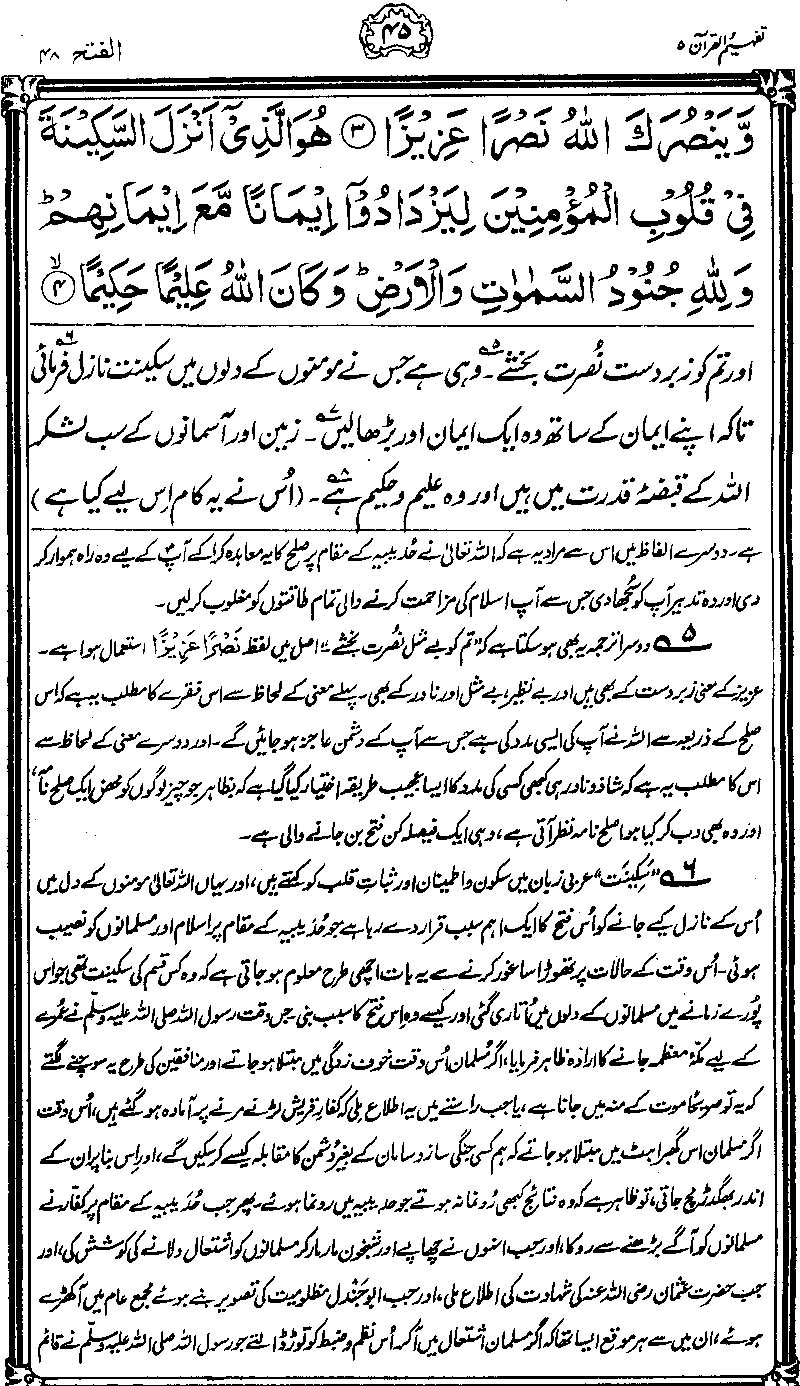 تفہیم القرآن ۵
۴۵
الفتح ۴۸
وَّيَنْصُرَكَ اللّٰهُ نَصْرًا عَزِيْزًا ۝۳ هُوَ الَّذِيْٓ اَنْزَلَ السَّكِيْنَةَ
فِيْ قُلُوْبِ الْمُؤْمِنِيْنَ لِيَزْدَادُوْٓا اِيْمَانًا مَّعَ اِيْمَانِهِمْ ؕ
وَلِلّٰهِ جُنُوْدُ السَّمٰوٰتِ وَالْاَرْضِ ؕ وَكَانَ اللّٰهُ عَلِيْمًا حَكِيْمًا ۝۴ ۙ
اور تم کو زبردست نُصرت بخشے۵۔ وہی ہے جس نے مومنوں کے دلوں میں سکینت نازل فرمائی۶
تاکہ اپنے ایمان کے ساتھ وہ ایک ایمان اور بڑھالیں۷۔ زمین اور آسمانوں کے سب لشکر
اللہ کے قبضۂ قدرت میں ہیں اور وہ علیم و حکیم ہے۸۔ (اُس نے یہ کام اِس لیے کیا ہے)
ہے۔ دوسرے الفاظ میں اس سے مراد یہ ہے کہ اللہ تعالیٰ نے حُدیبیہ کے مقام پر صلح کا یہ معاہدہ کرا کے آپؐ کے لیے وہ راہ ہموار کر
دی اور وہ تدبیر آپ کو سُجھا دی جس سے آپ اسلام کی مزاحمت کرنے والی تمام طاقتوں کو مغلوب کرلیں۔
۵ دوسرا ترجمہ یہ بھی ہو سکتا ہے کہ ”تم کو بے مثل نُصرت بخشے“۔ اصل میں لفظ نَصْرًا عَزِيْزًا استعمال ہوا ہے۔
عزیز کے معنی زبردست کے بھی ہیں اور بے نظیر، بے مثل اور نادر کے بھی۔ پہلے معنی کے لحاظ سے اس فقرے کا مطلب یہ ہے کہ اس
صلح کے ذریعہ سے اللہ نے آپ کی ایسی مدد کی ہے جس سے آپ کے دشمن عاجز ہو جائیں گے۔ اور دوسرے معنی کے لحاظ سے
اس کا مطلب یہ ہے کہ شاذ و نادر ہی کبھی کسی کی مدد کا ایسا عجیب طریقہ اختیار کیا گیا ہے کہ بظاہر جو چیز لوگوں کو محض ایک صلح نامہ،
اور وہ بھی دب کر کیا ہوا صلح نامہ نظر آتی ہے، وہی ایک فیصلہ کن فتح بن جانے والی ہے۔
۶ ”سَکِینَت“ عربی زبان میں سکون و اطمینان اور ثباتِ قلب کو کہتے ہیں، اور یہاں اللہ تعالیٰ مومنوں کے دل میں
اُس کے نازل کیے جانے کو اُس فتح کا ایک اہم سبب قرار دے رہا ہے جو حُدَیبیہ کے مقام پر اسلام اور مسلمانوں کو نصیب
ہوئی۔ اُس وقت کے حالات پر تھوڑا سا غور کرنے سے یہ بات اچھی طرح معلوم ہو جاتی ہے کہ وہ کس قسم کی سکینت تھی جو اس
پُورے زمانے میں مسلمانوں کے دلوں میں اُتاری گئی اور کیسے وہ اِس فتح کا سبب بنی۔ جس وقت رسول اللہ صلی اللہ علیہ وسلم نے عُمرے
کے لیے مکۂ معظمہ جانے کا ارادہ ظاہر فرمایا، اگر مُسلمان اُس وقت خوف زدگی میں مبتلا ہو جاتے اور منافقین کی طرح یہ سوچنے لگتے
کہ یہ تو صریحًا موت کے منہ میں جانا ہے، یا جب راستے میں یہ اطلاع ملی کہ کفارِ قریش لڑنے مرنے پر آمادہ ہو گئے ہیں، اُس وقت
اگر مسلمان اس گھبراہٹ میں مبتلا ہو جاتے کہ ہم کسی جنگی ساز و سامان کے بغیر دُشمن کا مقابلہ کیسے کرسکیں گے، اور اِس بنا پر ان کے
اندر بھگدڑ مچ جاتی، تو ظاہر ہے کہ وہ نتائج کبھی رُونما نہ ہوتے جو حدیبیہ میں رونما ہوئے۔ پھر جب حُدَیبیہ کے مقام پر کفّار نے
مسلمانوں کو آگے بڑھنے سے روکا، اور جب انہوں نے چھاپے اور شبخون مار مار کر مسلمانوں کو اشتعال دلانے کی کوشش کی، اور
جب حضرت عثمان رضی اللہ عنہ کی شہادت کی اطلاع ملی، اور جب ابو جَندل مظلومیت کی تصویر بنے ہوئے مجمع عام میں آکھڑے
ہوئے، ان میں سے ہر موقع ایسا تھا کہ اگر مسلمان اشتعال میں آکر اُس نظم و ضبط کو توڑ ڈالتے جو رسول اللہ صلی اللہ علیہ وسلم نے قائم